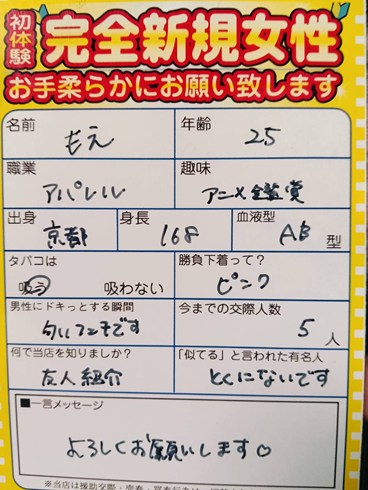 初体験
完全新規女性
お手柔らかにお願い致します
名前 もえ 年齢 25
職業 アパレル 趣味 アニメ鑑賞
出身 京都 身長 168 血液型 AB型
タバコは 吸う 吸わない 勝負下着って? ピンク
男性にドキっとする瞬間 今までの交際人数
匂いフェチです 5人
何で当店を知りましたか? 「似てる」と言われた有名人
友人紹介 とくにないです
■一言メッセージ
よろしくお願いします♡
※当店は援助交際・売春・買春行為は